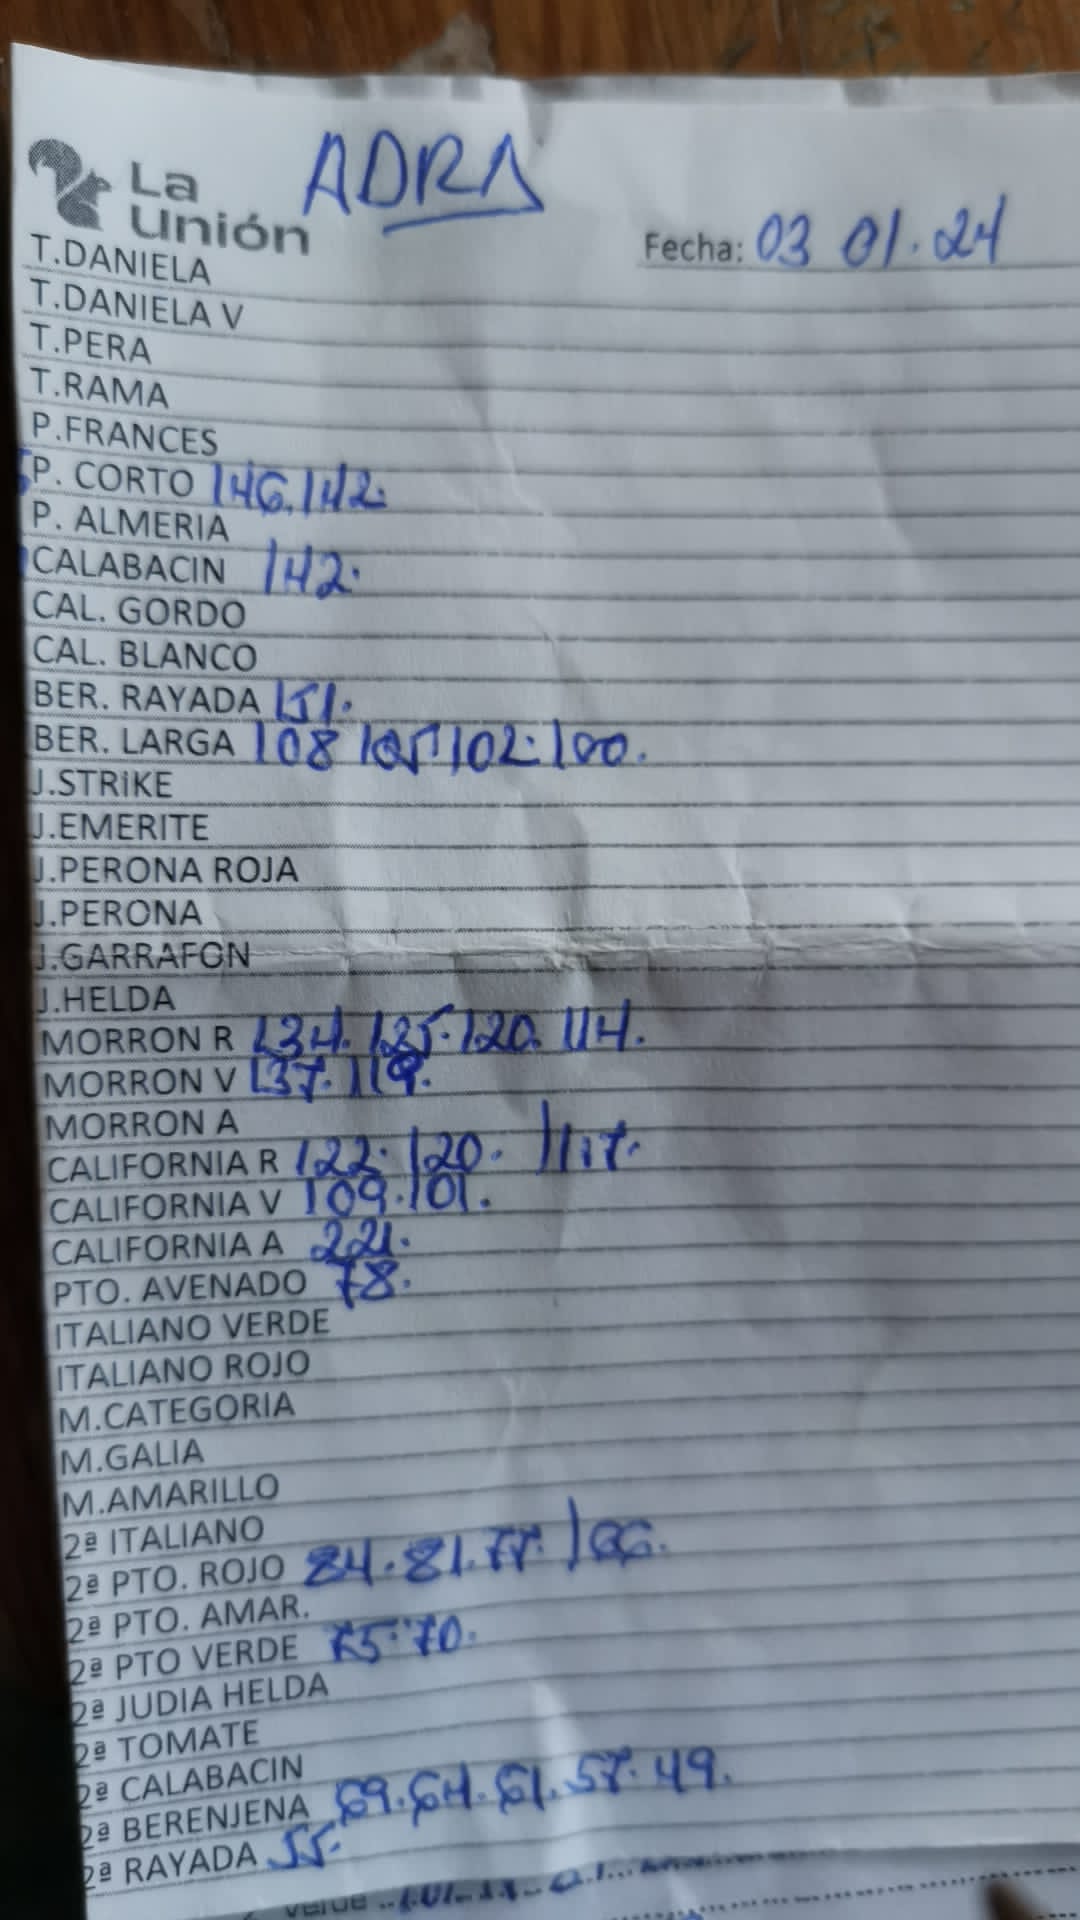 La
Unión
ADRA
Fecha: 03 01.24
T.DANIELA
T.DANIELA V
T.PERA
T.RAMA
P.FRANCES
P. CORTO 146.142.
P. ALMERIA
CALABACIN 142.
CAL. GORDO
CAL. BLANCO
BER. RAYADA 151.
BER. LARGA 108 105 102. 100.
J.STRIKE
J.EMERITE
J.PERONA ROJA
J.PERONA
J.GARRAFON
J.HELDA
MORRON R 134. 125. 120. 114.
MORRON V 137. 119.
MORRON A
CALIFORNIA R 122. 120. 117.
CALIFORNIA V 109. 101.
CALIFORNIA A 221.
PTO. AVENADO 78.
ITALIANO VERDE
ITALIANO ROJO
M.CATEGORIA
M.GALIA
M.AMARILLO
2ª ITALIANO
2ª PTO. ROJO 84. 81. 77.
2ª PTO. AMAR.
2ª PTO VERDE 75. 70.
2ª JUDIA HELDA
2ª TOMATE
2ª CALABACIN
2ª BERENJENA 69. 64. 61. 57. 49.
2ª RAYADA 55.
verde